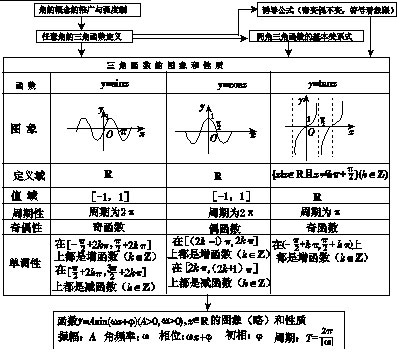 角的概念的推广与弧度制
诱导公式(奇变偶不变，符号看象限)
任意角的三角函数定义
同角三角函数的基本关系式
三角函数的图象和性质
函数 y=sinx y=cosx y=tanx
图象
定义域 R R {x|x∈R且x≠kπ+π/2}(k∈Z)
值域 [-1，1] [-1，1] R
周期性 周期为2π 周期为2π 周期为π
奇偶性 奇函数 偶函数 奇函数
单调性
在[-π/2+2kπ,π/2+2kπ]
上都是增函数(k∈Z)
在[π/2+2kπ,3π/2+2kπ]
上都是减函数(k∈Z)
在[(2k-1)π,2kπ]
上都是增函数(k∈Z)
在[2kπ,(2k+1)π]
上都是减函数(k∈Z)
在(-π/2+kπ,π/2+kπ)上
都是增函数(k∈Z)
函数y=Asin(ωx+φ)(A>0,ω>0),x∈R的图象(略)和性质
振幅：A 角频率：ω 相位：ωx+φ 初相：φ 周期：T=2π/|ω|